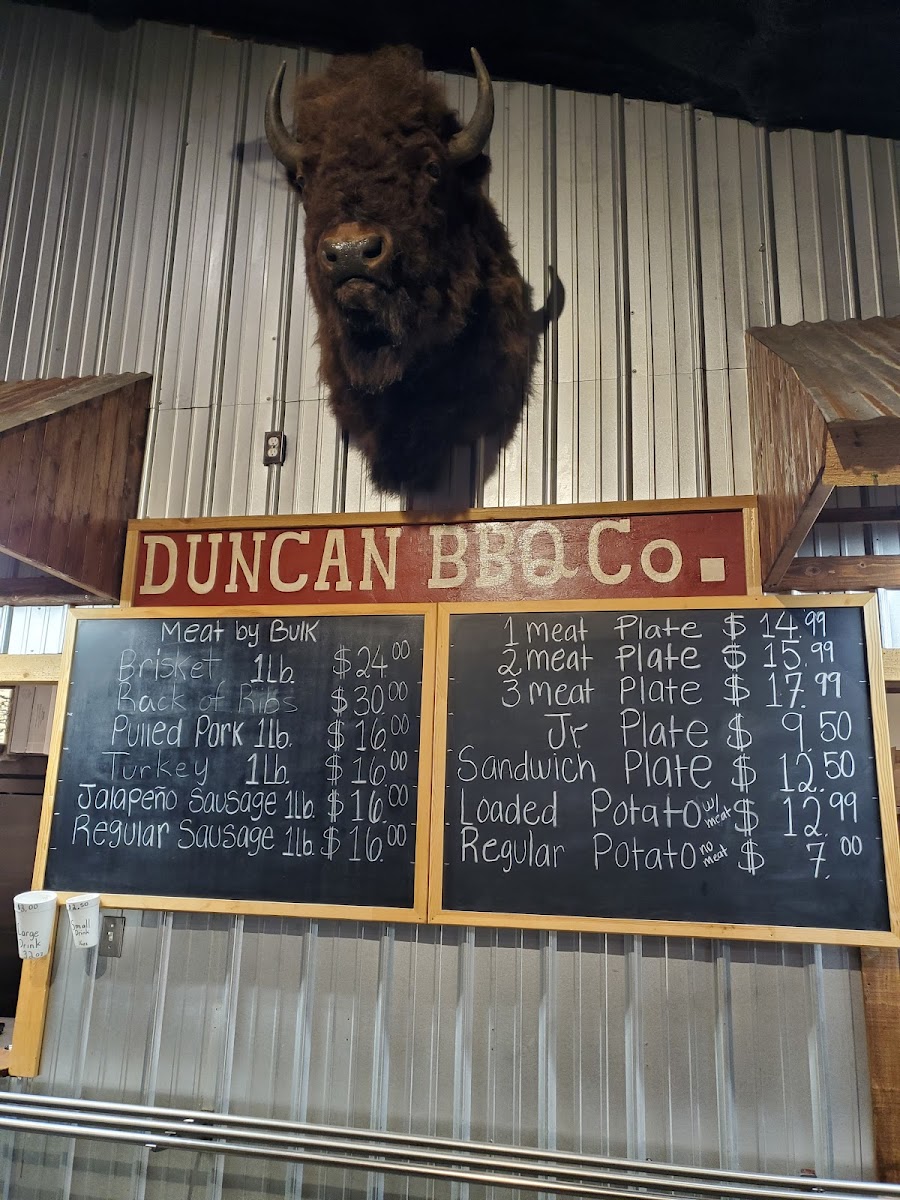 DUNCAN BBQ Co.
Meat by Bulk
Brisket 1lb. $24.00
Rack of Ribs $30.00
Pulled Pork 1lb. $16.00
Turkey 1lb. $16.00
Jalapeño Sausage 1lb. $16.00
Regular Sausage 1lb. $16.00
1 meat Plate $14.99
2 meat Plate $15.99
3 meat Plate $17.99
Jr. Plate $9.50
Sandwich Plate $12.50
Loaded Potato w/ meat $12.99
Regular Potato no meat $7.00
$3.00
Large
Drink
32oz
$2.50
Small
Drink